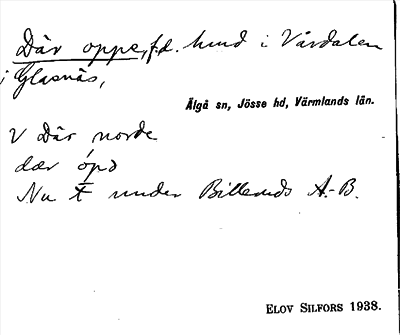 Där oppe, f.d. hmd i Vårdalen
i Glasnäs,
Älgå sn, Jösse hd, Värmlands län.
V Där norde
dær ópə
Nu † under Billeruds A.-B.
ELOV SILFORS 1938.